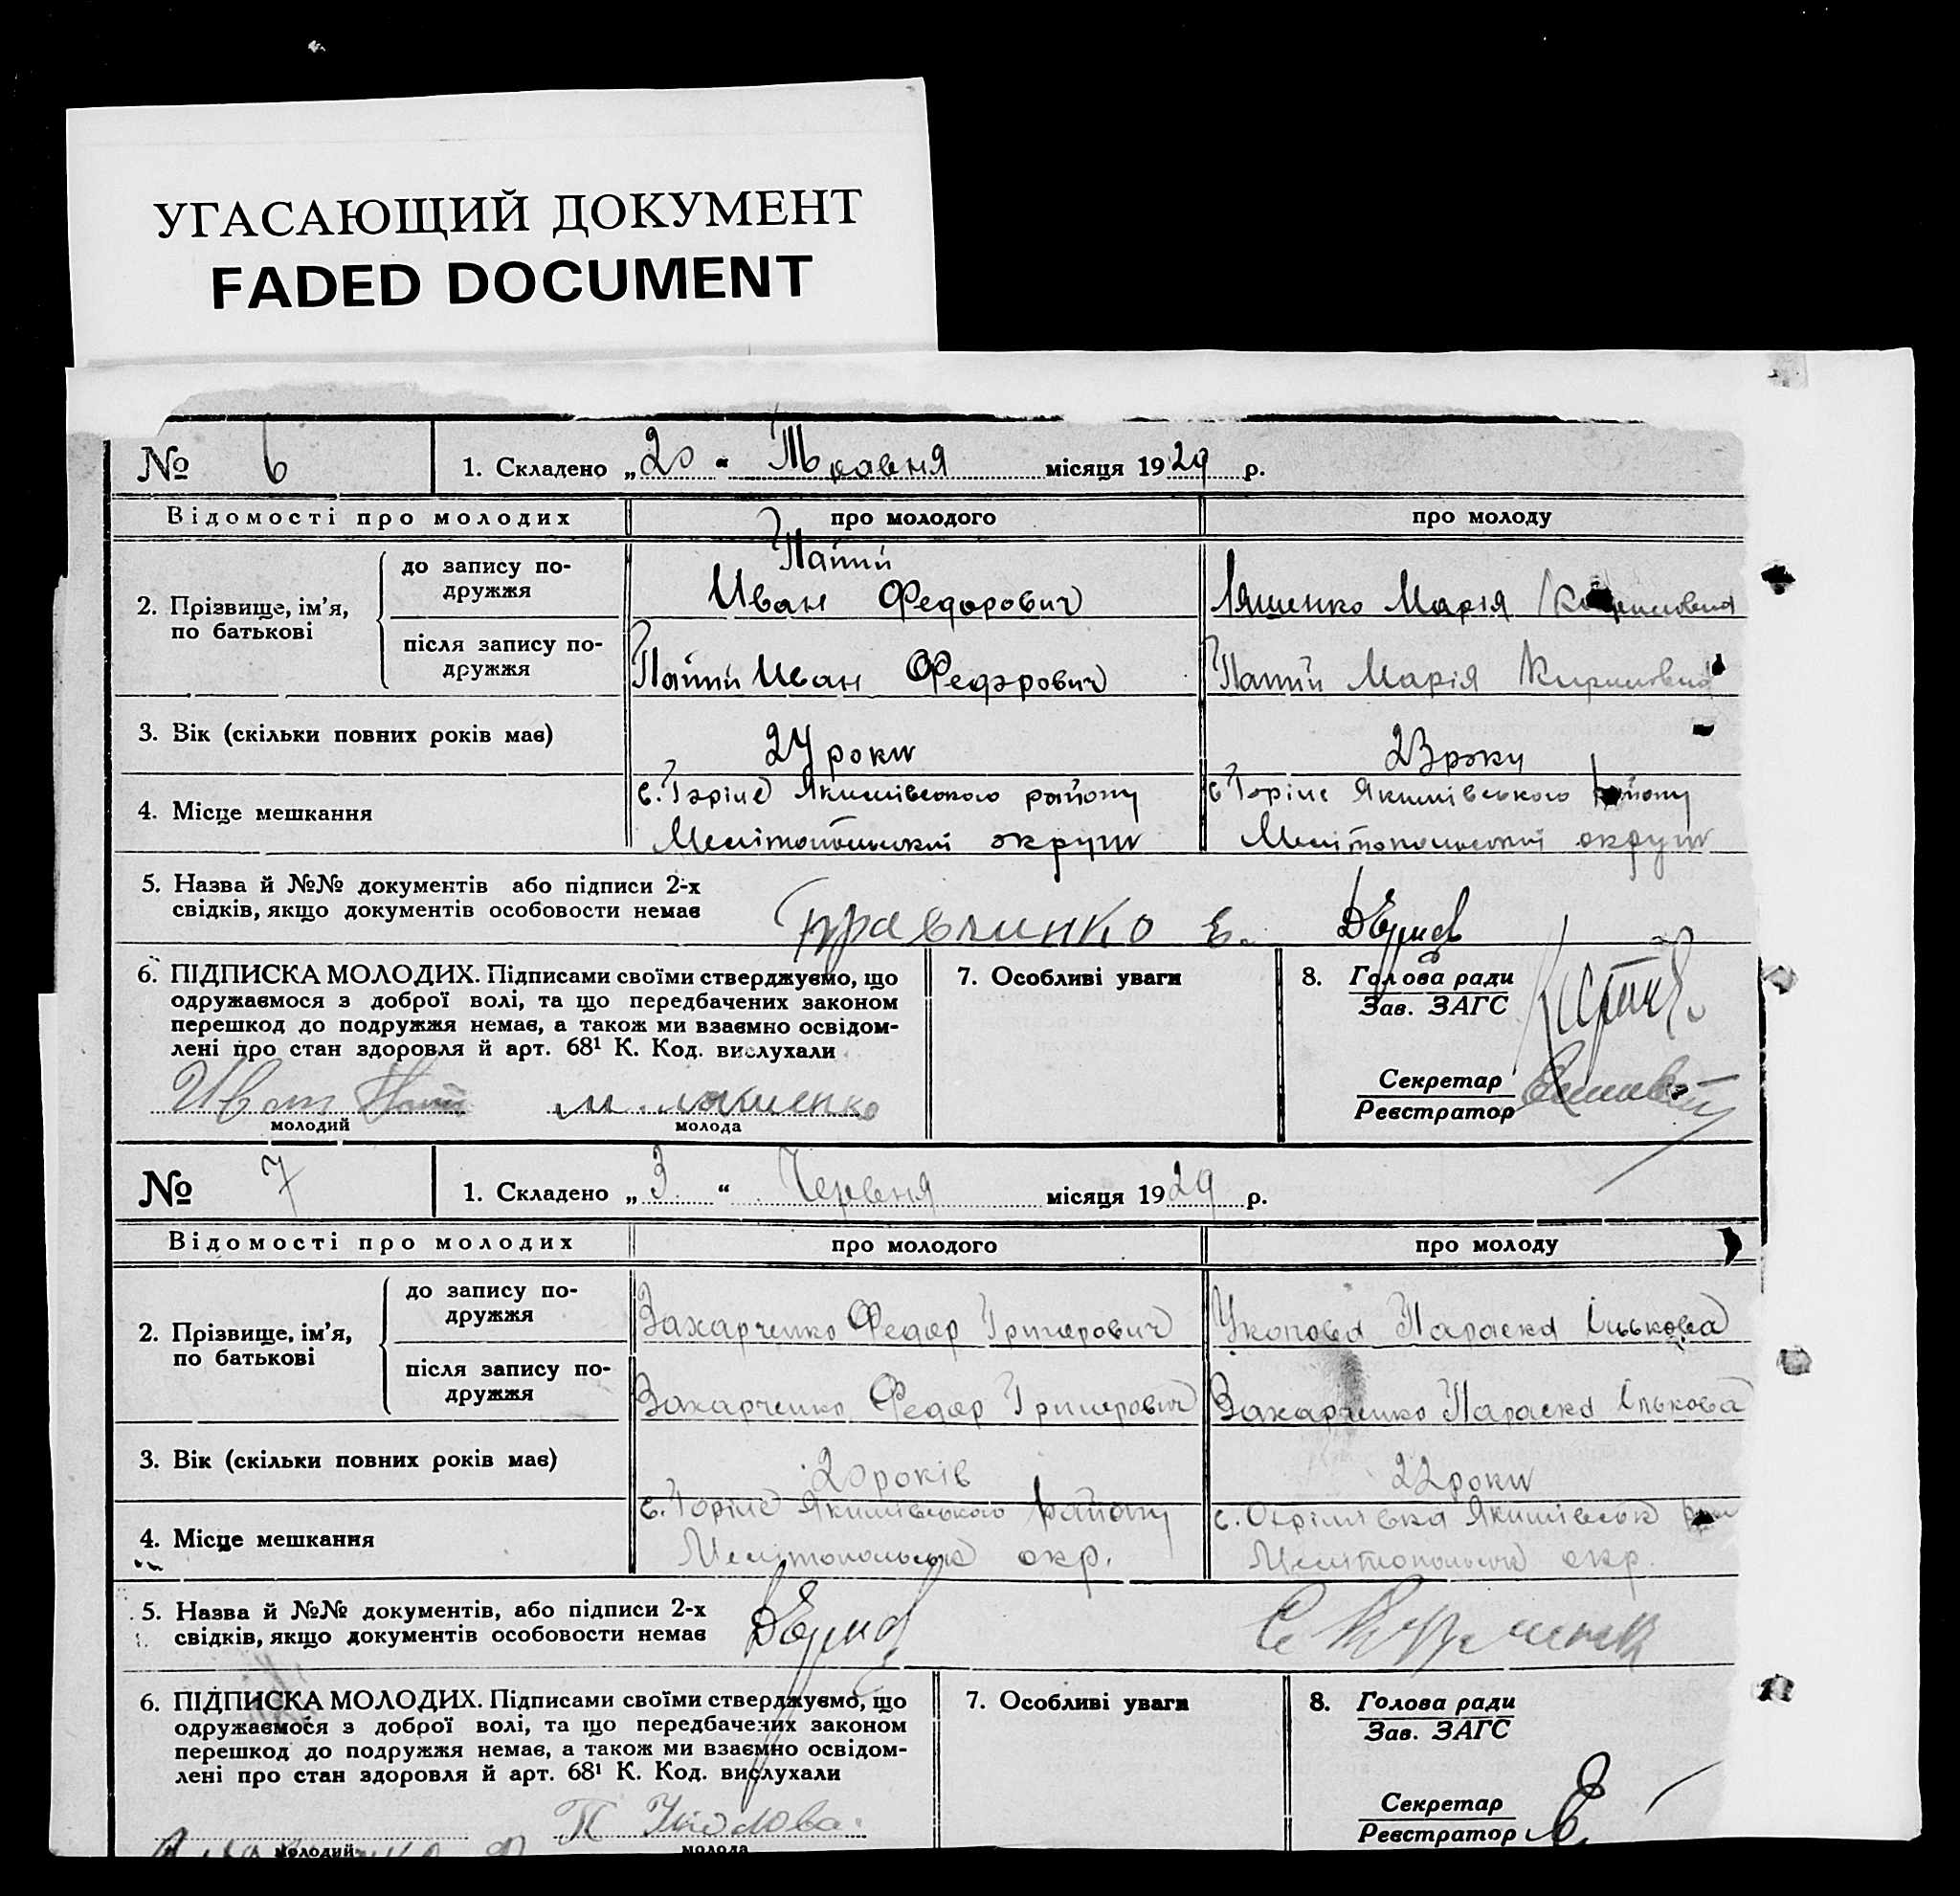 УГАСАЮЩИЙ ДОКУМЕНТ
FADED DOCUMENT
№ 6 1. Складено „20“ Травня місяця 1929 р.
Відомості про молодих про молодого про молоду
2. Прізвище, ім'я, по батькові
до запису подружжя
Иван Федорович
Ляшенко Марія
після запису подружжя
Иван Федорович
Марія Кириловна
3. Вік (скільки повних років має) 24 роки 23 роки
4. Місце мешкання
с. Горіле Якимівського району
Мелітопольської округи
с. Горіле Якимівського району
Мелітопольської округи
5. Назва й №№ документів або підписи 2-х
свідків, якщо документів особовости немає
6. ПІДПИСКА МОЛОДИХ. Підписами своїми стверджуємо, що
одружаємося з доброї волі, та що передбачених законом
перешкод до подружжя немає, а також ми взаємно освідом-
лені про стан здоров'я й арт. 68¹ К. Код. вислухали
Иван
молодий
М. Ляшенко
молода
7. Особливі уваги
8. Голова ради
Зав. ЗАГС
Секретар
Реєстратор
№ 7 1. Складено „3“ Червня місяця 1929 р.
Відомості про молодих про молодого про молоду
2. Прізвище, ім'я, по батькові
до запису подружжя
Захарченко Федор Григорович
Параска Ількова
після запису подружжя
Захарченко Федор Григорович
Захарченко Параска Ількова
3. Вік (скільки повних років має) 20 років 22 роки
4. Місце мешкання
с. Горіле Якимівського району
Мелітопольськ окр.
с. Охрімівка Якимівськ
Мелітопольськ окр.
5. Назва й №№ документів, або підписи 2-х
свідків, якщо документів особовости немає
6. ПІДПИСКА МОЛОДИХ. Підписами своїми стверджуємо, що
одружаємося з доброї волі, та що передбачених законом
перешкод до подружжя немає, а також ми взаємно освідом-
лені про стан здоров'я й арт. 68¹ К. Код. вислухали
молодий
П
молода
7. Особливі уваги
8. Голова ради
Зав. ЗАГС
Секретар
Реєстратор